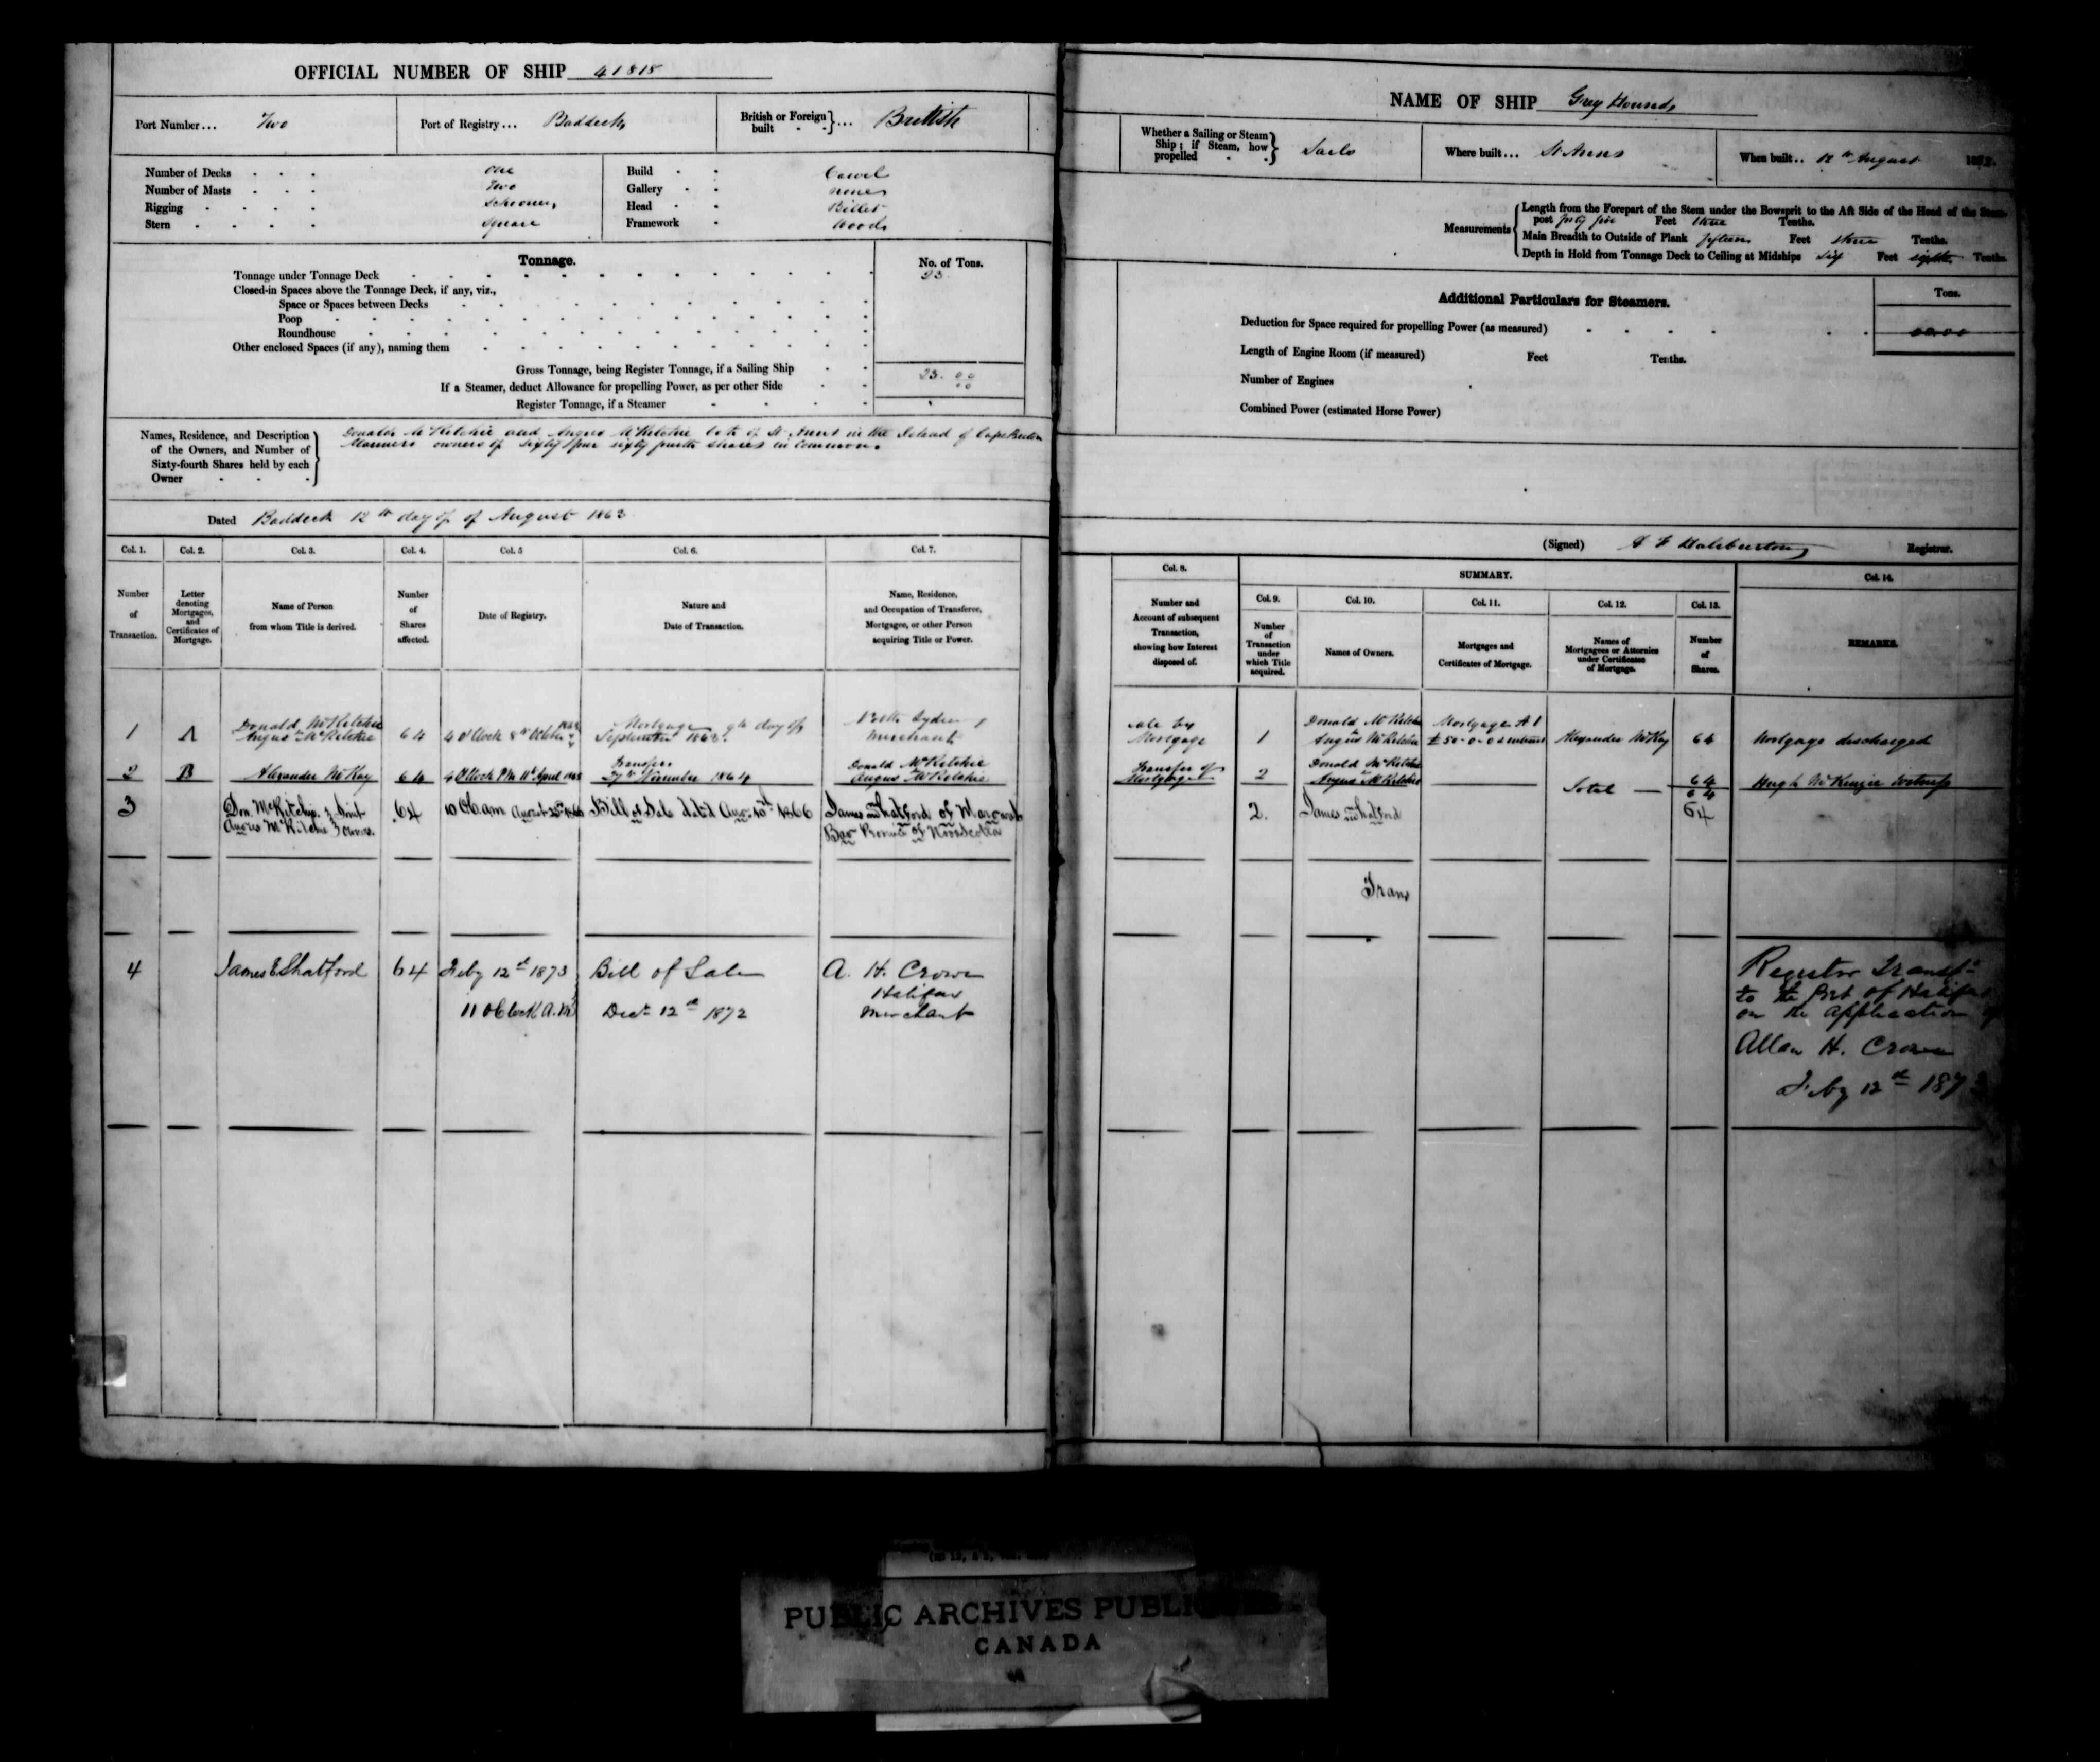 OFFICIAL NUMBER OF SHIP 41818
Port Number... Two
Port of Registry... Baddeck
British or Foreign built - - } ... British
Number of Decks . . . one
Number of Masts . . . Two
Rigging . . . . Schooner
Stern . . . . Square
Build - - Carvel
Gallery - - none
Head - - Billet
Framework - Wood
Tonnage.
No. of Tons.
Tonnage under Tonnage Deck 23
Closed-in Spaces above the Tonnage Deck, if any, viz.,
Space or Spaces between Decks
Poop
Roundhouse
Other enclosed Spaces (if any), naming them
Gross Tonnage, being Register Tonnage, if a Sailing Ship 23.00
If a Steamer, deduct Allowance for propelling Power, as per other Side 00
Register Tonnage, if a Steamer
Names, Residence, and Description of the Owners, and Number of Sixty-fourth Shares held by each Owner
Donald McRitchie and Angus McRitchie both of St Anns in the Island of Cape Breton
Mariners owners of Sixty four sixty fourth shares in Common.
Dated Baddeck 12th day of of August 1863
NAME OF SHIP Grey Hound
Whether a Sailing or Steam Ship; if Steam, how propelled - - } Sails
Where built... St Anns
When built.. 12th August
Measurements
Length from the Forepart of the Stem under the Bowsprit to the Aft Side of the Head of the Stern-
post forty five Feet three Tenths.
Main Breadth to Outside of Plank fifteen Feet three Tenths.
Depth in Hold from Tonnage Deck to Ceiling at Midships six Feet eight Tenths.
Additional Particulars for Steamers.
Tons.
Deduction for Space required for propelling Power (as measured) 00.00
Length of Engine Room (if measured) Feet Tenths.
Number of Engines
Combined Power (estimated Horse Power)
(Signed) Haliburton Registrar.
Col. 1. Col. 2. Col. 3. Col. 4. Col. 5 Col. 6. Col. 7.
Number of Transaction.
Letter denoting Mortgages, and Certificates of Mortgage.
Name of Person from whom Title is derived.
Number of Shares affected.
Date of Registry.
Nature and Date of Transaction.
Name, Residence, and Occupation of Transferee, Mortgagee, or other Person acquiring Title or Power.
Col. 8. SUMMARY. Col. 14.
Col. 9. Col. 10. Col. 11. Col. 12. Col. 13.
Number and Account of subsequent Transaction, showing how Interest disposed of.
Number of Transaction under which Title acquired.
Names of Owners.
Mortgages and Certificates of Mortgage.
Names of Mortgagees or Attornies under Certificates of Mortgage.
Number of Shares.
REMARKS.
1 A Donald McRitchie Angus McRitchie 64 4 O'Clock 8th October 1863 Mortgage 9th day of September 1863. North Sydney Merchant
Mortgage 1 Donald McRitchie Angus McRitchie Mortgage A 1 £50-0-0 & interest Alexander McKay 64 Mortgage discharged
2 B Alexander McKay 64 4 O'Clock PM 11th April 1865 Transfer 1864 Donald McRitchie Angus McRitchie
Transfer of Mortgage 2 Donald McRitchie Angus McRitchie Total 64 64 Hugh McKenzie witness
3 Don. McRitchie Angus McRitchie } Joint Owners. 64 10 O'C. am August 1866 Bill of Sale dated Aug. 10th 1866 James Shatford of Margarets Bay Province of Nova Scotia
2. James Shatford 64
Trans
4 James E Shatford 64 Feby 12th 1873 Bill of Sale A. H. Crowe
11 O'Clock A.M. Decr 12th 1872 Halifax
Merchant
Register Transfd
to the Port of Halifax
on the application of
Allan H. Crowe
Feby 12th 1873
PUBLIC ARCHIVES PUBLIQUES
CANADA